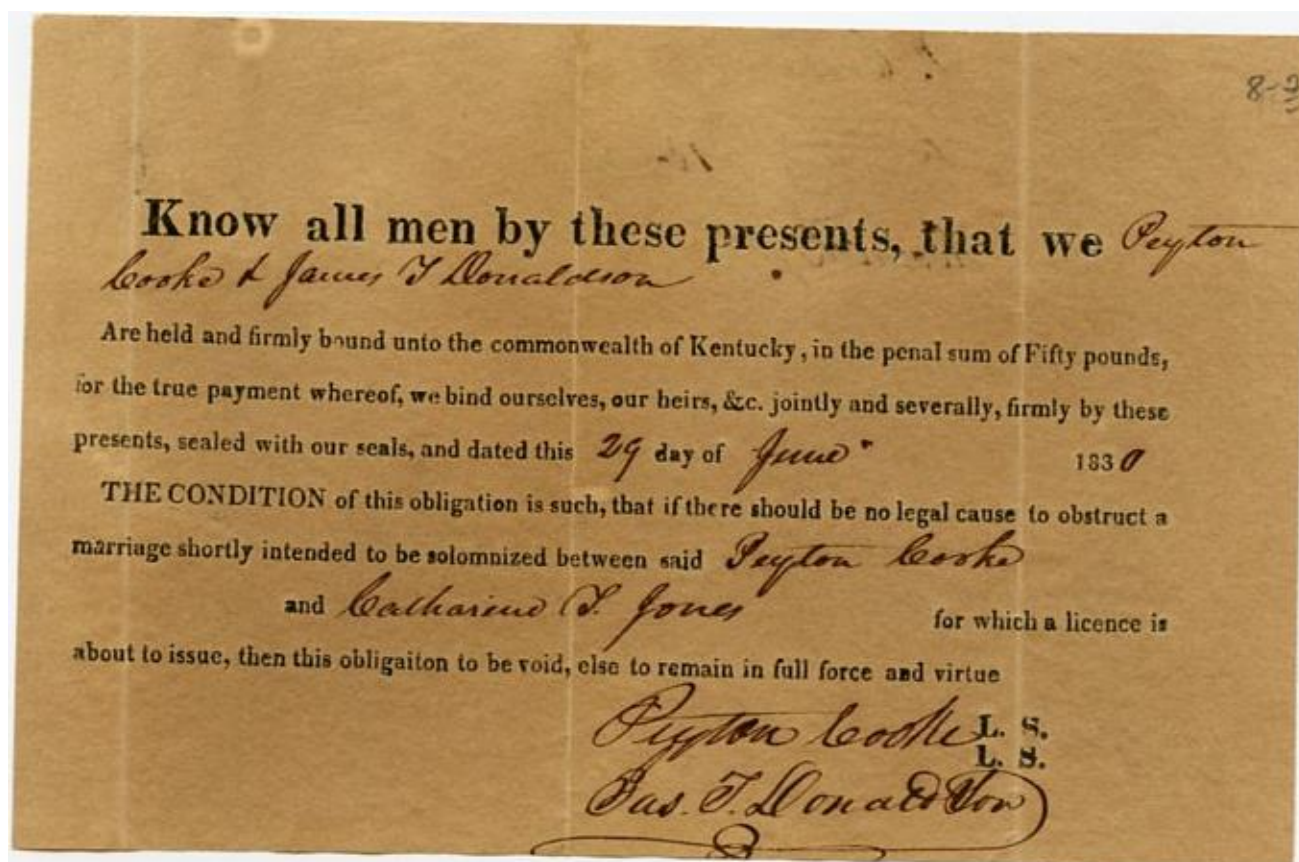 8-
Know all men by these presents, that we Peyton
Cooke & James T Donaldson
Are held and firmly bound unto the commonwealth of Kentucky, in the penal sum of Fifty pounds,
for the true payment whereof, we bind ourselves, our heirs, &c. jointly and severally, firmly by these
presents, sealed with our seals, and dated this 29 day of June 1830
THE CONDITION of this obligation is such, that if there should be no legal cause to obstruct a
marriage shortly intended to be solomnized between said Peyton Cooke
and Catharine T. Jones for which a licence is
about to issue, then this obligaiton to be void, else to remain in full force and virtue
Peyton Cooke L. S.
L. S.
Jas. T. Donaldson